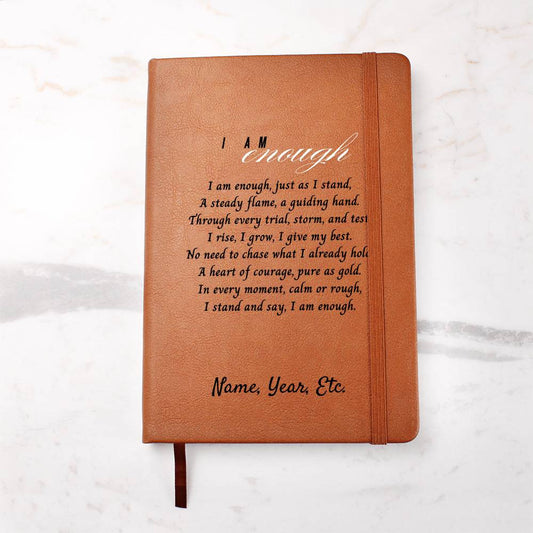 I AM
enough
I am enough, just as I stand,
A steady flame, a guiding hand.
Through every trial, storm, and test
I rise, I grow, I give my best.
No need to chase what I already hold
A heart of courage, pure as gold.
In every moment, calm or rough,
I stand and say, I am enough.
Name, Year, Etc.